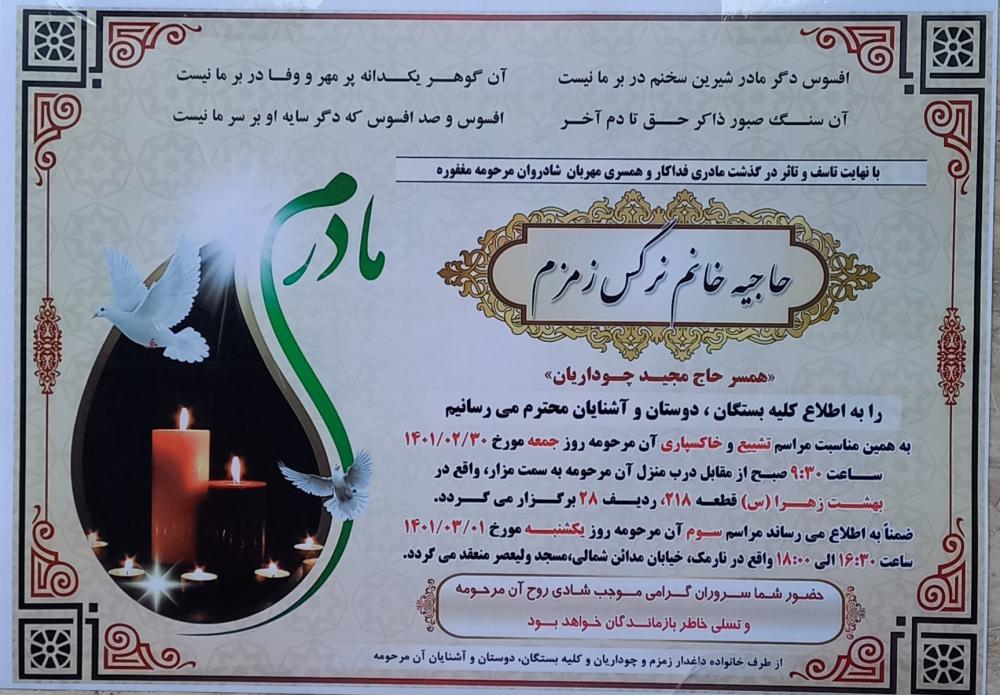 افسوس دگر مادر شیرین سخنم در بر ما نیست
آن گوهر یکدانه پر مهر و وفا در بر ما نیست
آن سنگ صبور ذاکر حق تا دم آخر
افسوس و صد افسوس که دگر سایه او بر سر ما نیست
مادرم
با نهایت تاسف و تاثر در گذشت مادری فداکار و همسری مهربان شادروان مرحومه مغفوره
حاجیه خانم نرگس زمزم
«همسر حاج مجید چوداریان»
را به اطلاع کلیه بستگان ، دوستان و آشنایان محترم می رسانیم
به همین مناسبت مراسم تشییع و خاکسپاری آن مرحومه روز جمعه مورخ ۱۴۰۱/۰۲/۳۰
ساعت ۹:۳۰ صبح از مقابل درب منزل آن مرحومه به سمت مزار، واقع در
بهشت زهرا (س) قطعه ۲۱۸، ردیف ۲۸ برگزار می گردد.
ضمناً به اطلاع می رساند مراسم سوم آن مرحومه روز یکشنبه مورخ ۱۴۰۱/۰۳/۰۱
ساعت ۱۶:۳۰ الی ۱۸:۰۰ واقع در نارمک، خیابان مدائن شمالی،مسجد ولیعصر منعقد می گردد.
حضور شما سروران گرامی موجب شادی روح آن مرحومه
و تسلی خاطر بازماندگان خواهد بود
از طرف خانواده داغدار زمزم و چوداریان و کلیه بستگان، دوستان و آشنایان آن مرحومه